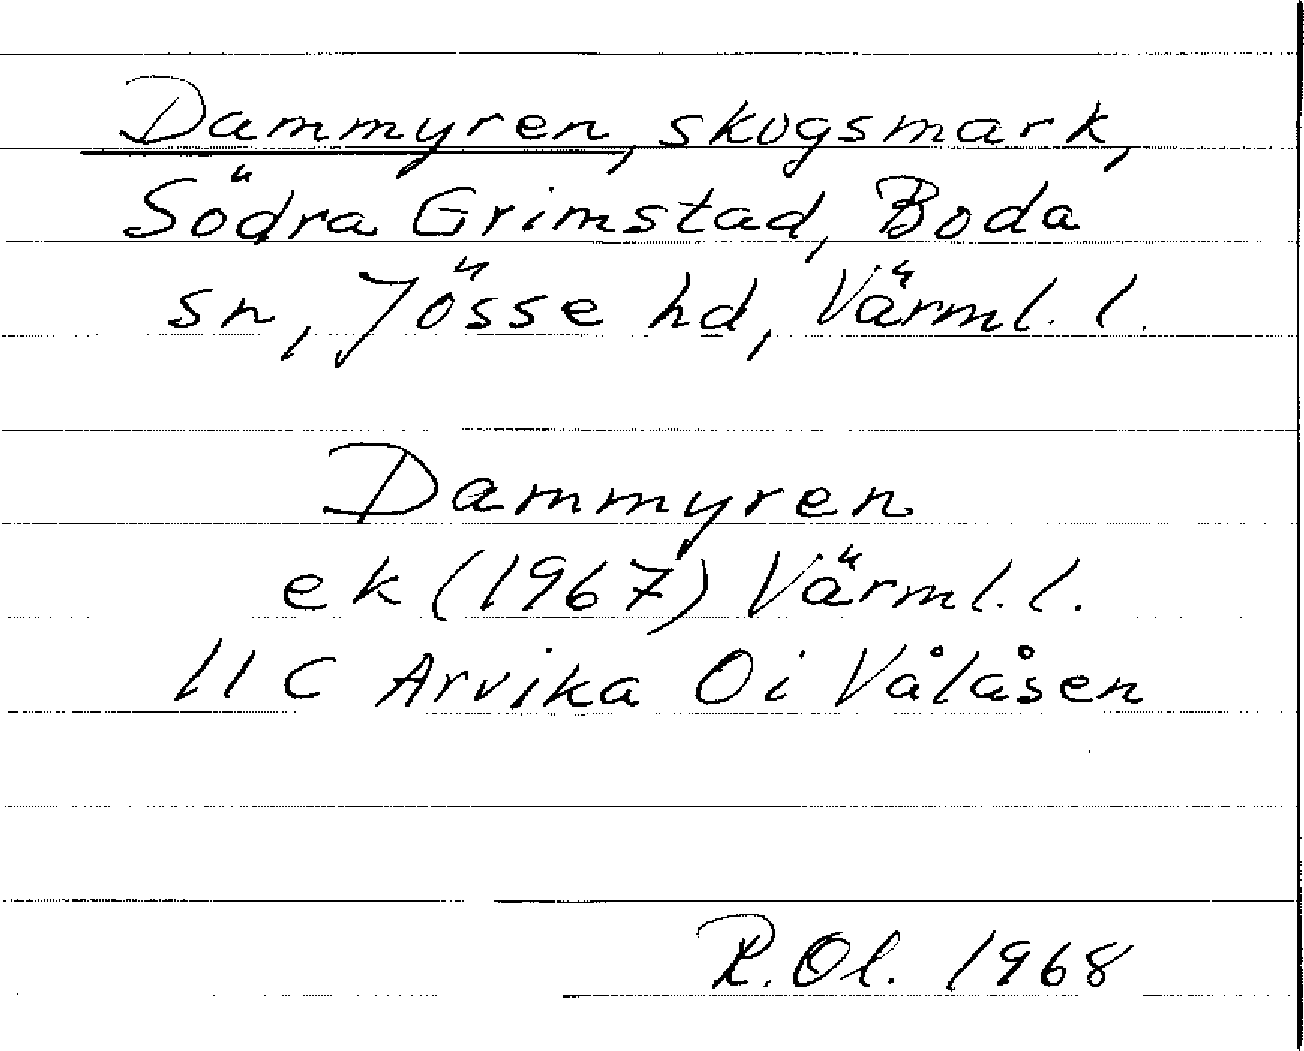 Dammyren, skogsmark,
Södra Grimstad, Boda
sn, Jösse hd, Värml. l.
Dammyren
ek (1967) Värml. l.
11 C Arvika 0i Vålåsen
R. Ol. 1968